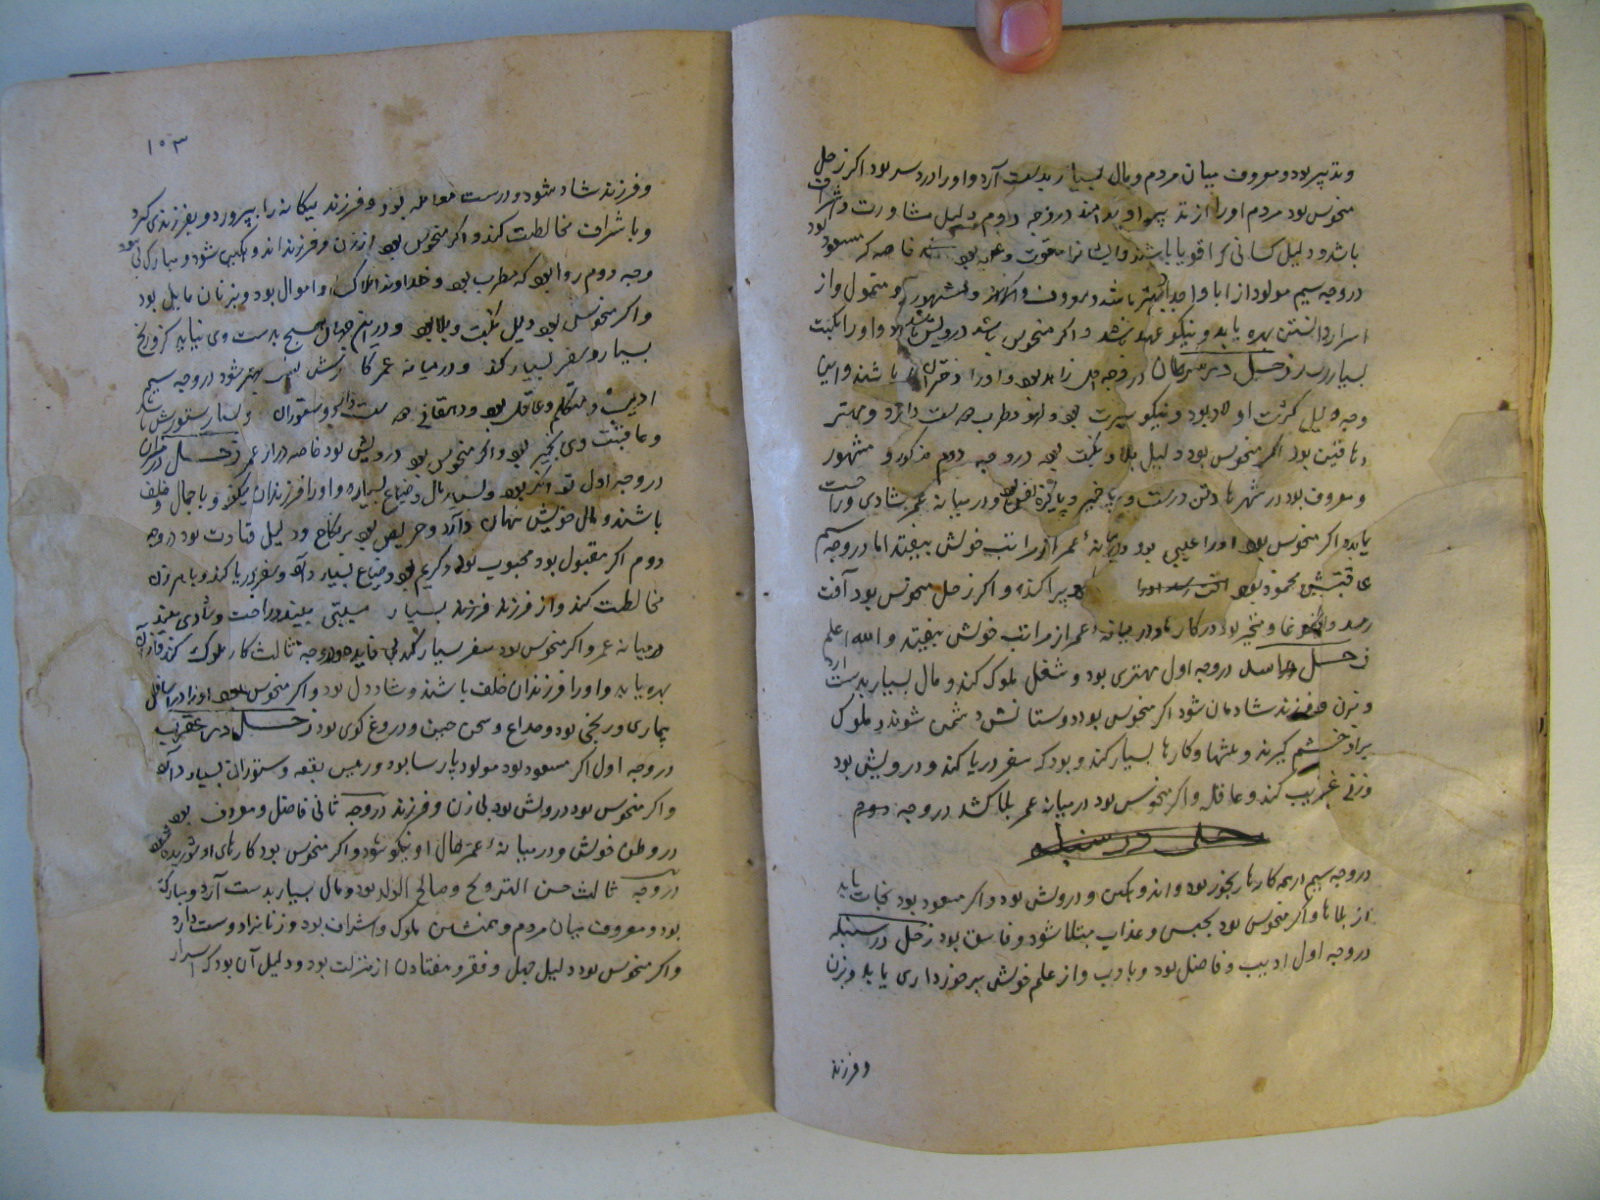 و تدبیر بود و معروف میان مردم و مال بسیار بدست آرد و او را درد سر بود اکر زحل
منحوس بود مردم او را از بد در وجه دوم دلیل مشاورت و اشراف
باشد و دلیل کسانی که اقویا باشند خاصه که مسعود بود
در وجه سیم مولود از ابا و اجداد بهتر باشد و معروف و مشهور و متمول و از
اسرار دانستن بهره یابد و نیکو عهد باشد و اکر منحوس باشد درویش و او را نکبت
بسیار رسد زحل در سرطان در وجه اول زاهد بود و او را دختران باشند و این
وجه دلیل کثرت اولاد بود و نیکو سیرت بود و لهو و طرب دوست دارد و مهتر
دهاقین بود اکر منحوس بود دلیل بلا و نکبت بود در وجه دوم مذکور و مشهور
و معروف بود در شهرها و تن درست و پاکیزه نفس بود و در میانه عمر شادی و راحت
یابد و اکر منحوس بود او را عیبی بود و در میانه عمر از مراتب خویش بیفتد اما در وجه سیم
عاقبتش محمود بود و اکر زحل منحوس بود آفت
رسد و در کارها و در میانه عمر از مراتب خویش بیفتد و الله اعلم
زحل در اسد در وجه اول مهتری بود و شغل ملوک کند و مال بسیار بدست آرد
و بزن و فرزند شادمان شود اکر منحوس بود دوستانش دشمن شوند و ملوک
برو خشم کیرند و کارها بسیار کند و بود که سفر دریا کند و درویش بود
و زنی غریب کند و عاقله و اکر منحوس بود در میانه عمر بلا کشد در وجه دوم
زحل در سنبله
در وجه سیم از همه کارها رنجور بود و اندوهکین و درویش بود و اکر مسعود بود نجات یابد
از بلاها و اکر منحوس بود بحبس و عذاب مبتلا شود و فاسق بود زحل در سنبله
در وجه اول ادیب و فاضل بود و با ادب و از علم خویش برخورداری یابد و بزن
و فرزند
۱۰۳
و فرزند شاد شود و درست معامله بود و فرزند بیکانه را بپرورد و بفرزندی کیرد
و با شراف مخالطت کند و اکر منحوس بود از زن و فرزند اندوهکین شود و مبارک پی بود
وجه دوم روا بود که مطرب بود و خداوند املاک و اموال بود و بزنان مایل بود
و اکر منحوس بود دلیل نکبت و بلا بود و درین جهان هیچ بدست وی نیاید جز رنج
بسیار و سفر بسیار کند و در میانه عمر کارش بهتر شود در وجه سیم
ادیب و متکلم و عاقل بود و دهقانی دوست دارد و ستوران و بسیار ستورش باشد
و عاقبت وی بخیر بود و اکر منحوس بود درویش بود خاصه در آخر عمر زحل در میزان
در وجه اول توانکر بود و بسیار مال و ضیاع بسیار و او را فرزندان نیکو و با جمال و خلف
باشند و مال خویش نهان دارد و حریص بود بر نکاح و دلیل قیادت بود در وجه
دوم اکر مقبول بود محبوب بود و کریم بود و ضیاع بسیار دارد و سفر دریا کند و با هر زن
مخالطت کند و از فرزند فرزند بسیار بیند و راحت و شادی بیند
در میانه عمر و اکر منحوس بود سفر بسیار کند بی فایده و در وجه ثالث کار ملوک کند و از آن
بهره یابد و او را فرزندان خلف باشند و شاد دل بود و اکر منحوس بود او را در اسافل
بیماری و رنجی بود و صداع و دروغ کوی بود زحل در عقرب
در وجه اول اکر مسعود بود مولود پارسا بود و رییس بقعه و ستوران بسیار دارد
و اکر منحوس بود درویش بود بی زن و فرزند در وجه ثانی فاضل و معروف بود
در وطن خویش و در میانه عمر حال او نیکو شود و اکر منحوس بود کارهای او شوریده بود
در وجه ثالث حسن التزویج و صالح الولد بود و مال بسیار بدست آرد و مبارک
بود و معروف میان مردم و همنشین ملوک و اشراف بود و زنانرا دوست دارد
و اکر منحوس بود دلیل جهل و فقر و افتادن از منزلت بود و دلیل آن بود که اسرار